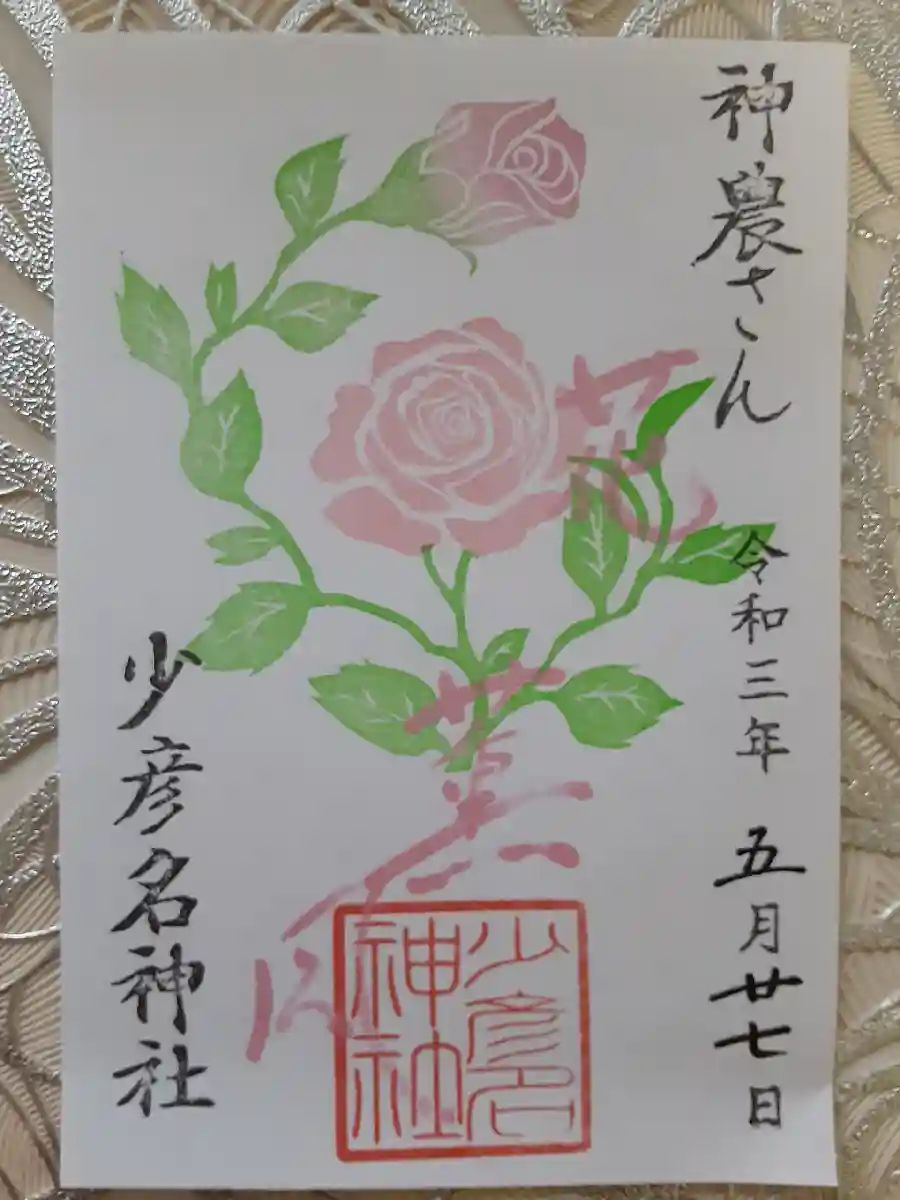 神農さん
令和三年 五月廿七日
花
薫
少彦名神社
少彦名神社